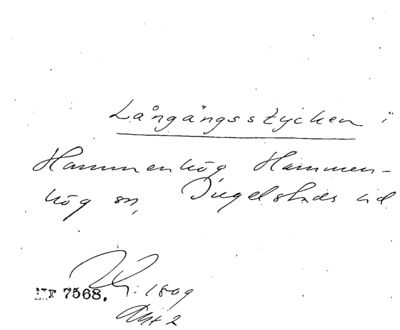 Långängsstycken i
Hammenhög Hammen-
hög sn, Ingelstads hd
MF 7568. 1809
Akt 2